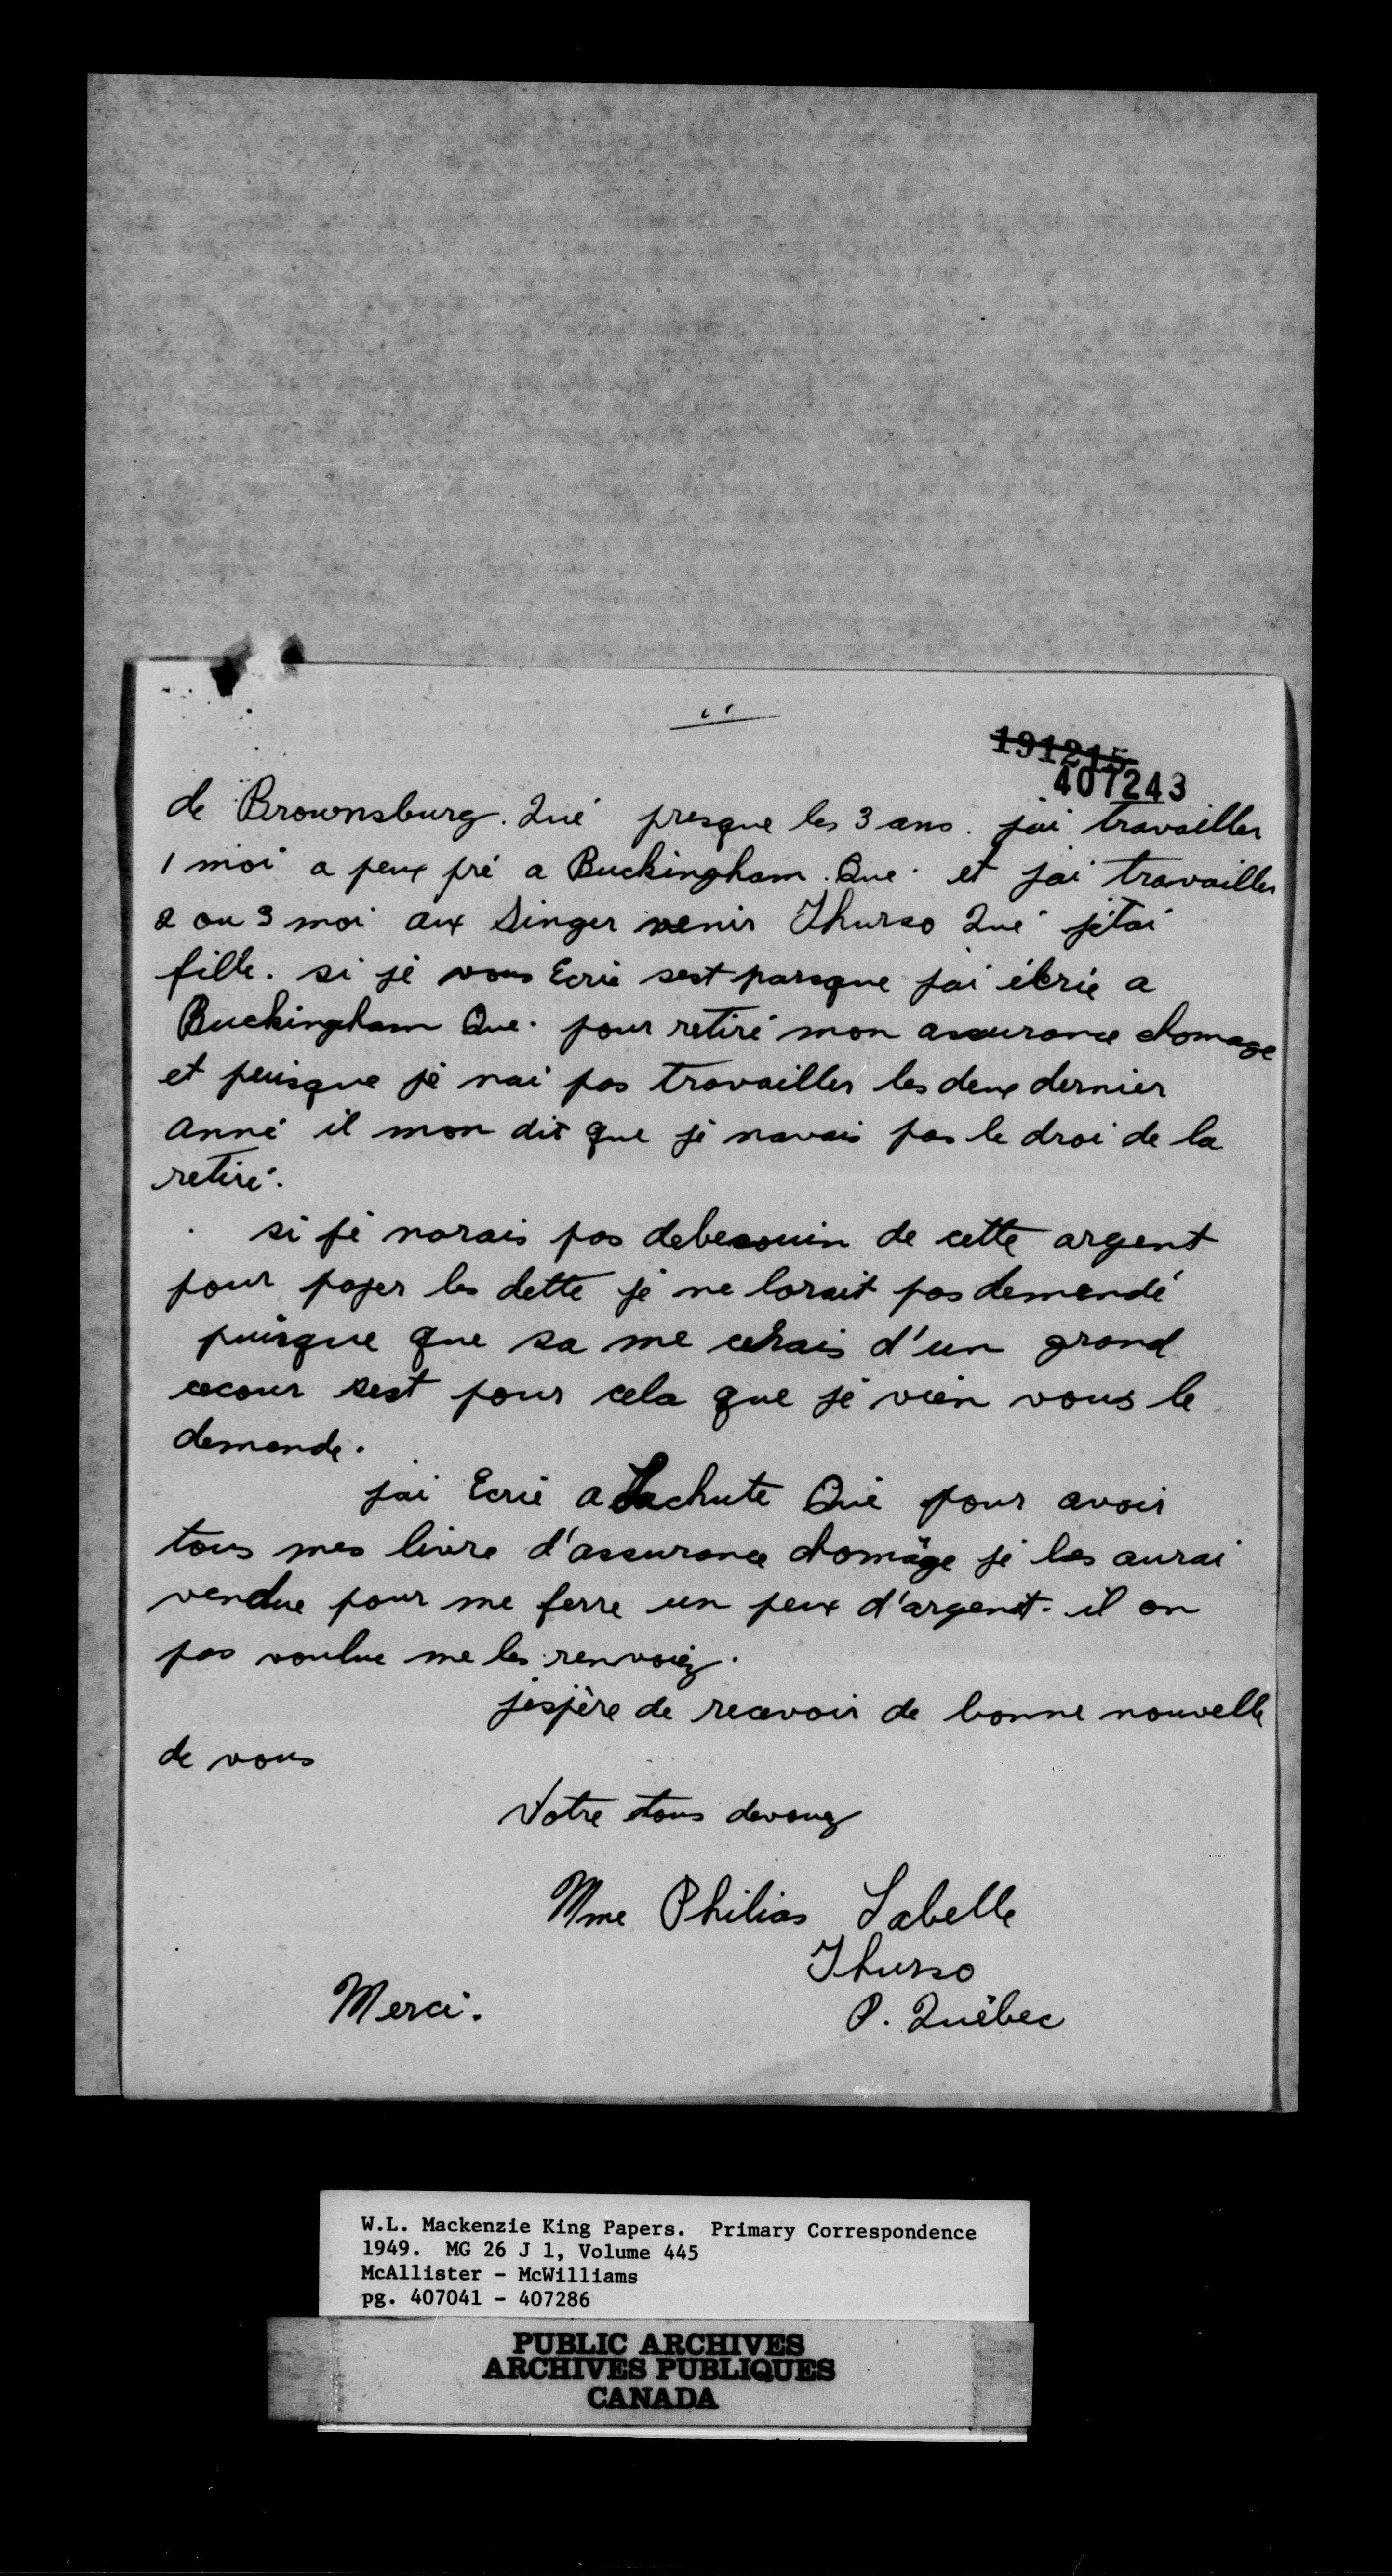 191215
407243
de Brownsburg. Qué presque les 3 ans. jai travailler
1 moi a peux pré a Buckingham. Que. et jai travailler
2 ou 3 moi aux Singer venir Thurso Qué j'étai
fille. si jé vous Ecrie sest parsque jai écrie a
Buckingham Que. pour retiré mon assurance chomage
et puisque jé nai pas travailler les deux dernier
anné il mon dit que jé navais pas le droi de la
retiré.
si jé norais pas debesouin de cette argent
pour payer les dette jé ne lorait pas demendé
puisque que sa me cerais d'un grand
cecour sest pour cela que jé vien vous le
demande.
jai Ecrie a Lachute Qué pour avoir
tous mes livre d'assurance chomâge jé les aurai
vendue pour me ferre un peux d'argent. il on
pas voulue me les renvoiez.
jespère de recevoir de bonne nouvelle
de vous
Votre tous devouez
Mme Philias Labelle
Thurso
Merci. P. Québec
W.L. Mackenzie King Papers. Primary Correspondence
1949. MG 26 J 1, Volume 445
McAllister - McWilliams
pg. 407041 - 407286
PUBLIC ARCHIVES
ARCHIVES PUBLIQUES
CANADA